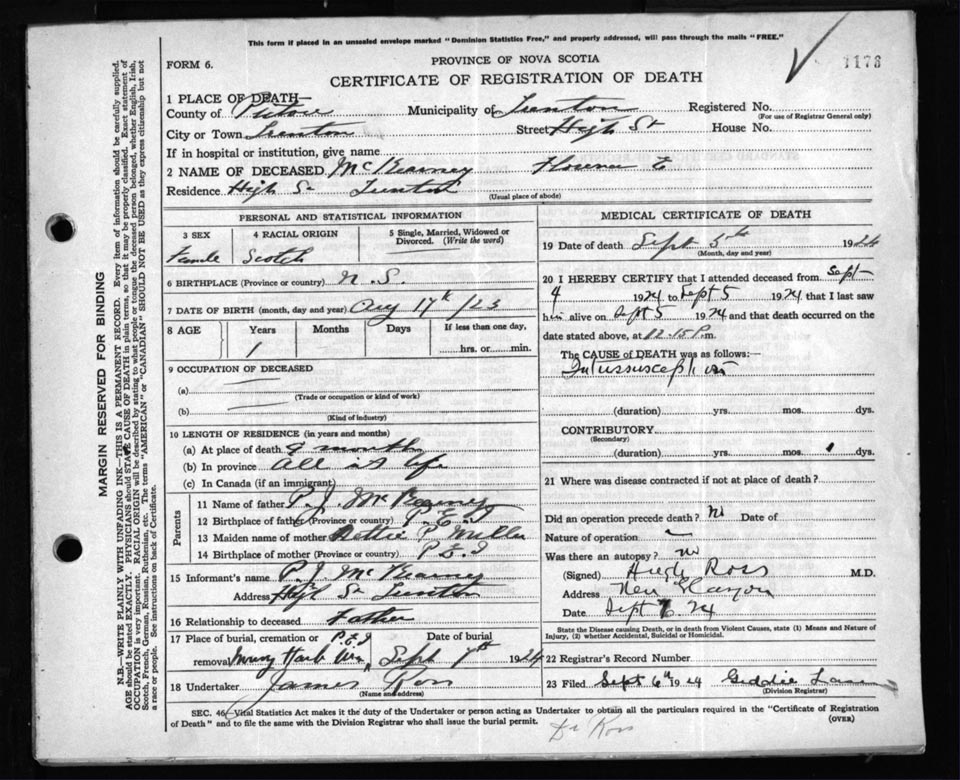 This form if placed in an unsealed envelope marked "Dominion Statistics Free," and properly addressed, will pass through the mails "FREE."
1178
FORM 6.
PROVINCE OF NOVA SCOTIA
CERTIFICATE OF REGISTRATION OF DEATH
1 PLACE OF DEATH—
County of Pictou Municipality of Trenton Registered No.
(For use of Registrar General only)
City or Town Trenton Street High St House No.
If in hospital or institution, give name
2 NAME OF DECEASED McKearney Florence E
Residence High St Trenton
(Usual place of abode)
PERSONAL AND STATISTICAL INFORMATION
3 SEX 4 RACIAL ORIGIN 5 Single, Married, Widowed or Divorced. (Write the word)
Female Scotch
6 BIRTHPLACE (Province or country) N.S.
7 DATE OF BIRTH (month, day and year) Aug 17th /23
8 AGE Years Months Days If less than one day,
1 hrs. or min.
9 OCCUPATION OF DECEASED
(a)
(Trade or occupation or kind of work)
(b)
(Kind of industry)
10 LENGTH OF RESIDENCE (in years and months)
(a) At place of death 9 months
(b) In province all its life
(c) In Canada (if an immigrant)
Parents
11 Name of father P.J. McKearney
12 Birthplace of father (Province or country) P.E.I
13 Maiden name of mother Miller
14 Birthplace of mother (Province or country) P.E.I
15 Informant's name P.J. McKearney
Address High St Trenton
16 Relationship to deceased Father
17 Place of burial, cremation or P.E.I Date of burial
removal Murray Harb Sept 7th 1924
18 Undertaker James Ross
(Name and address)
MEDICAL CERTIFICATE OF DEATH
19 Date of death Sept 5th 1924
(Month, day and year)
20 I HEREBY CERTIFY that I attended deceased from Sept
4 1924 to Sept 5 1924 that I last saw
him alive on Sept 5 1924 and that death occurred on the
date stated above, at 12.15 P.m.
The CAUSE of DEATH was as follows:—
Intussusception
(duration) yrs. mos. dys.
CONTRIBUTORY
(Secondary)
(duration) yrs. mos. 1 dys.
21 Where was disease contracted if not at place of death?
Did an operation precede death? No Date of
Nature of operation
Was there an autopsy? no
(Signed) Hugh Ross M.D.
Address New Glasgow
Date Sept 6 24
State the Disease causing Death, or in death from Violent Causes, state (1) Means and Nature of Injury, (2) whether Accidental, Suicidal or Homicidal.
22 Registrar's Record Number
23 Filed Sept 6th 1924 Geddie
(Division Registrar)
SEC. 46 Vital Statistics Act makes it the duty of the Undertaker or person acting as Undertaker to obtain all the particulars required in the "Certificate of Registration
of Death" and to file the same with the Division Registrar who shall issue the burial permit.
(OVER)
Dr Ross
MARGIN RESERVED FOR BINDING
N.B.—WRITE PLAINLY WITH UNFADING INK—THIS IS A PERMANENT RECORD. Every item of information should be carefully supplied.
AGE should be stated EXACTLY. PHYSICIANS should STATE CAUSE OF DEATH in plain terms, so that it may be properly classified. Exact statement of
OCCUPATION is very important. RACIAL ORIGIN will be described by stating to what people or tongue the deceased person belonged, whether English, Irish,
Scotch, French, German, Russian, Ruthenian, etc. The terms "AMERICAN" or "CANADIAN" SHOULD NOT BE USED as they express citizenship but not
a race or people. See instructions on back of Certificate.